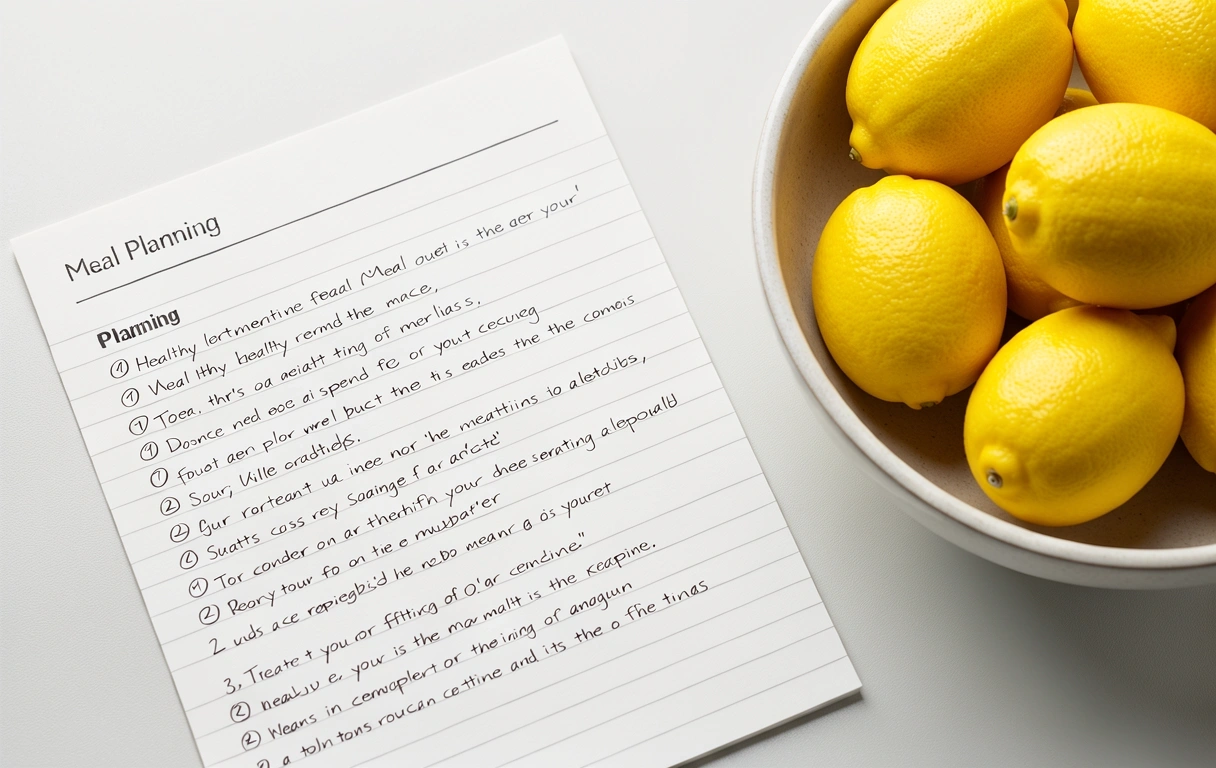 Meal Planning
Planning
① Healthy lertmentine feaal Meal ouet is the aer your'
① Weal lthy heallty rermd the mace,
① Toea. thr's oa aeiatt ting of mer liass.
① Doonce ned eoe ai spend fe or yout cecueg
① fouot aen plor wrel buct the tis eades the the comois
② Sour, Ville oradtids.
② Gur rorteant ua inee nor 'he meattiins io aletdibs,
② Suatts coss rey soainge f ar an'cte'
① Tor conder on ar therhifh your dhee serating aleporally
② Reory tour fo on tie e muubat'er
2 uuds ace rapiegbi;'d he ne.bo meanr a ois youret
3, Treate t you or fifting of O'ar cemdine."
② neaiu v e, your is the mar malit is the keapine.
② Weans in cemvaplert or the ining of anagun
a toln tons roucan ce ttine and its the o fhe tinas